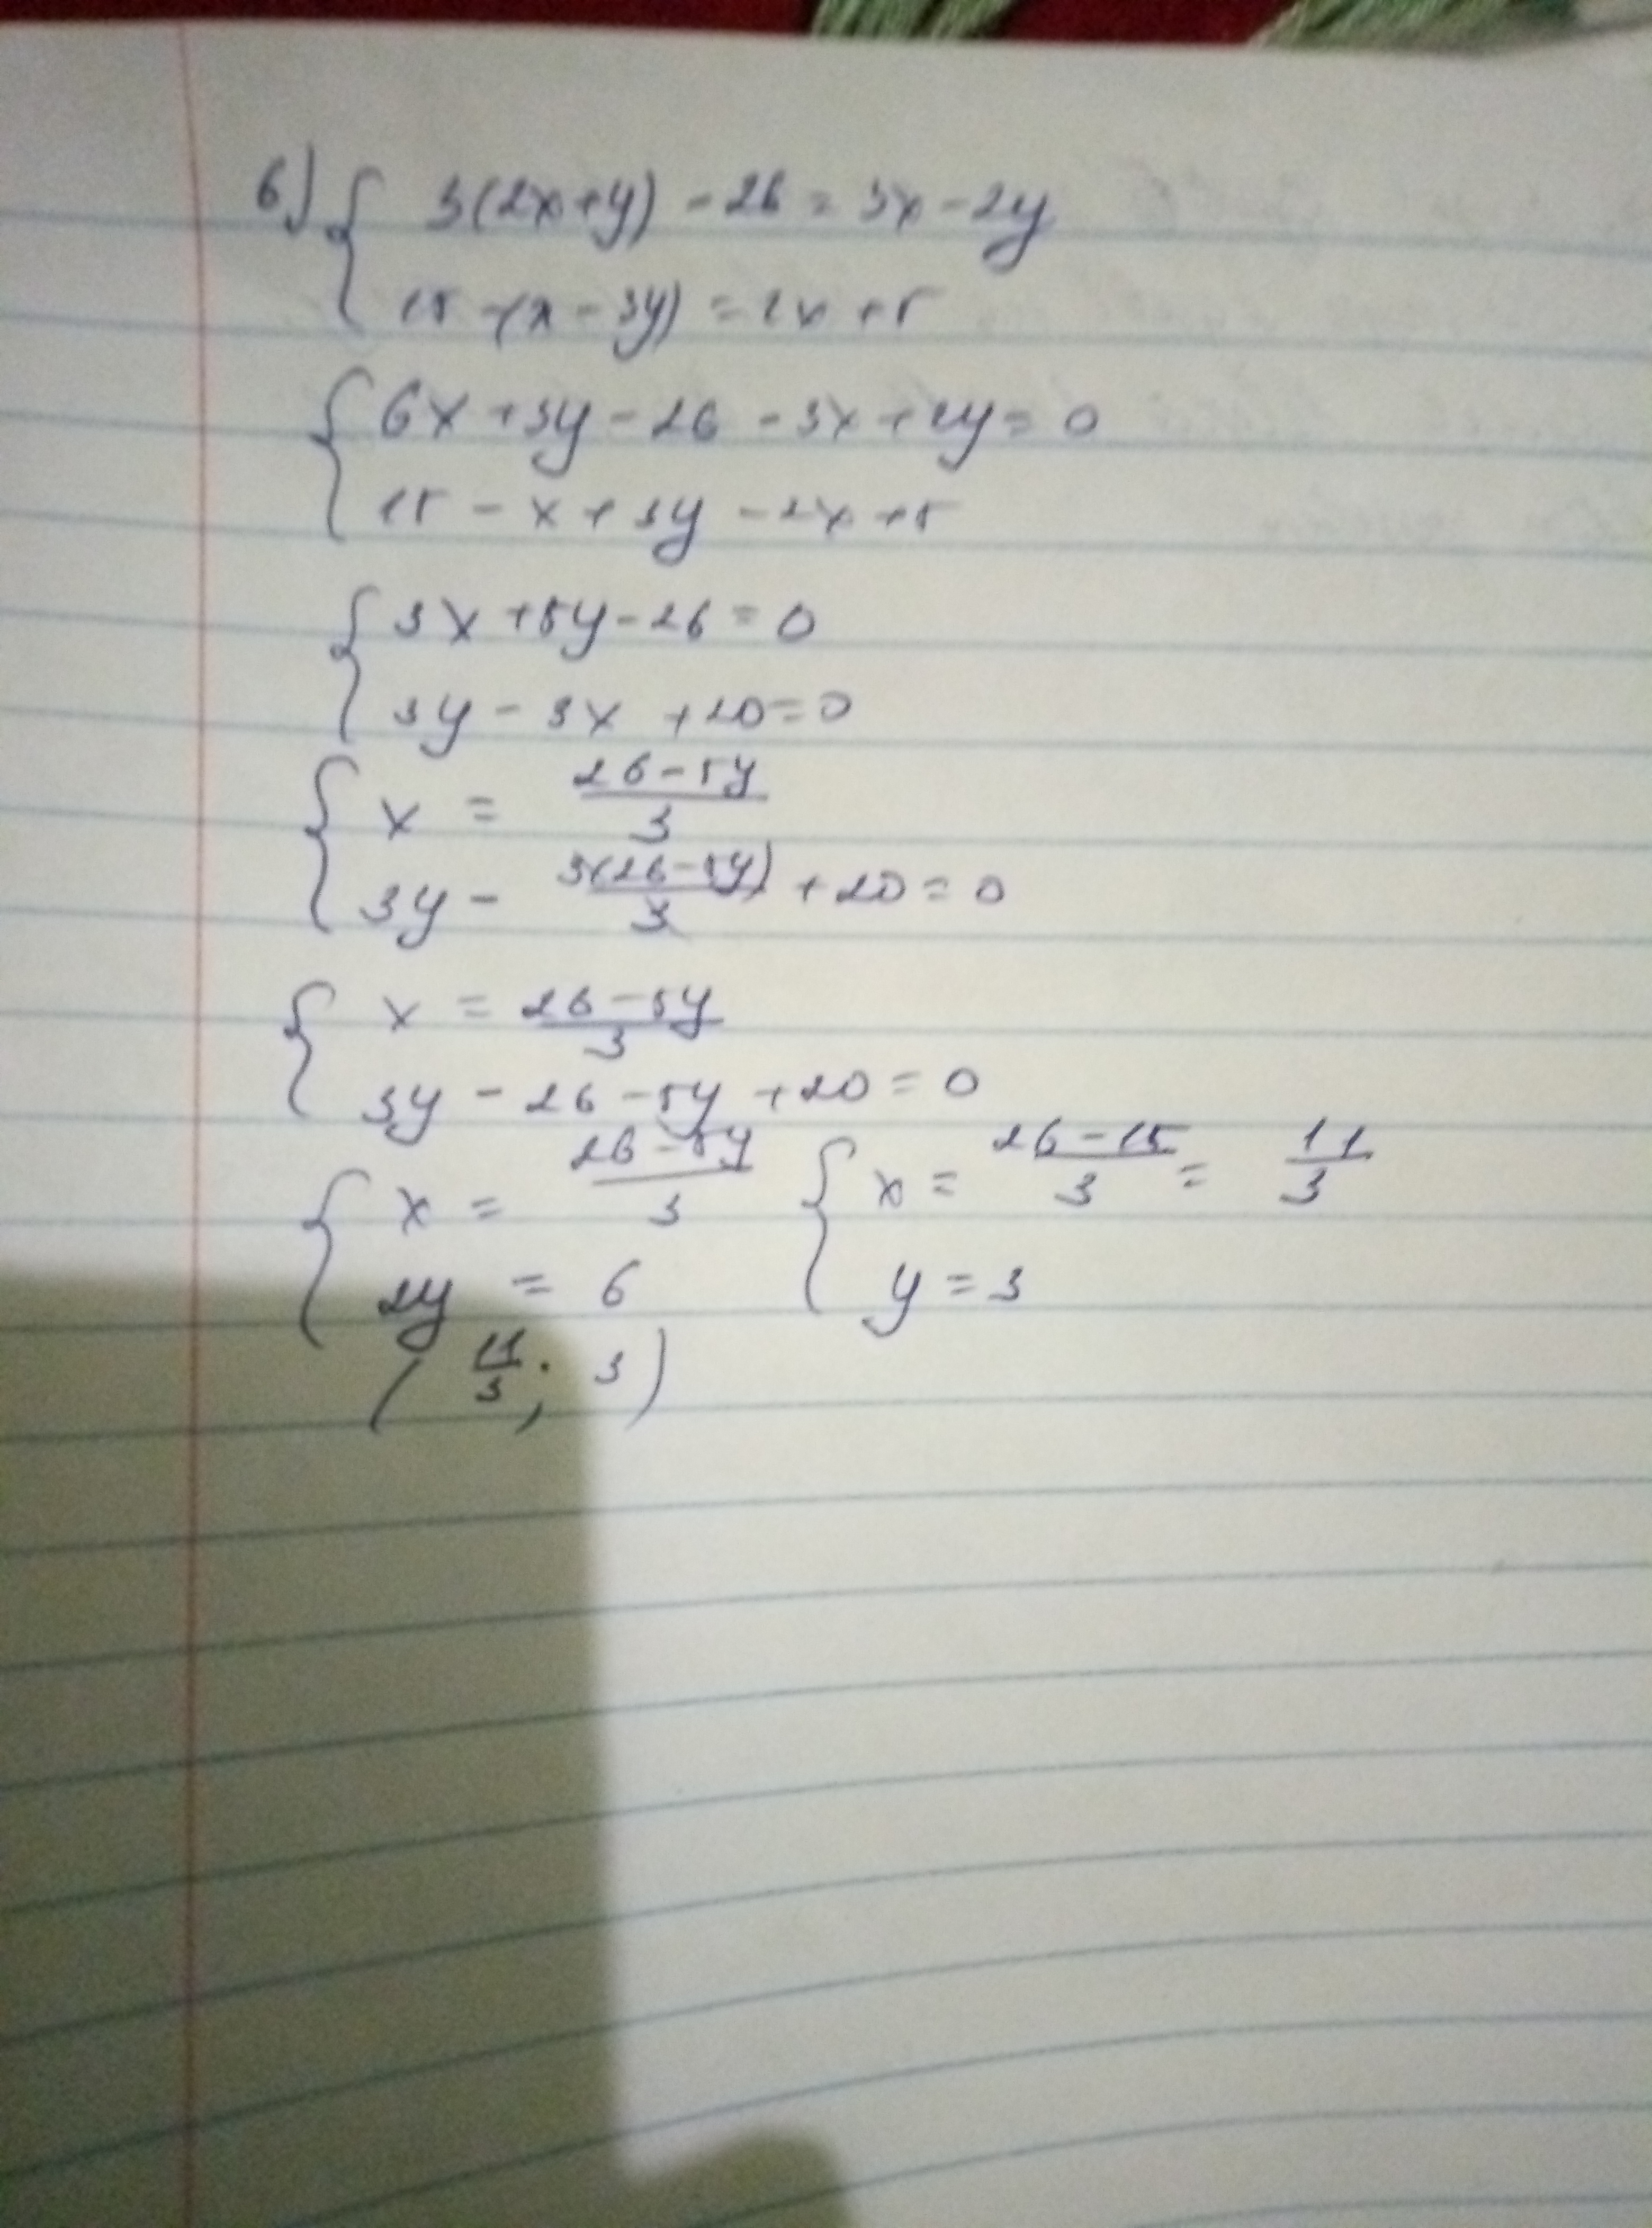 б) { 3(2x+y) - 26 = 3x - 2y
15 - (x - 3y) = 2x + 5
{ 6x + 3y - 26 - 3x + 2y = 0
15 - x + 3y - 2x + 5
{ 3x + 5y - 26 = 0
3y - 3x + 20 = 0
{ x = (26 - 5y)/3
3y - 3(26 - 5y)/3 + 20 = 0
{ x = (26 - 5y)/3
3y - 26 - 5y + 20 = 0
{ x = (26 - 5y)/3 { x = (26 - 15)/3 = 11/3
2y = 6 y = 3
( 11/3 ; 3 )